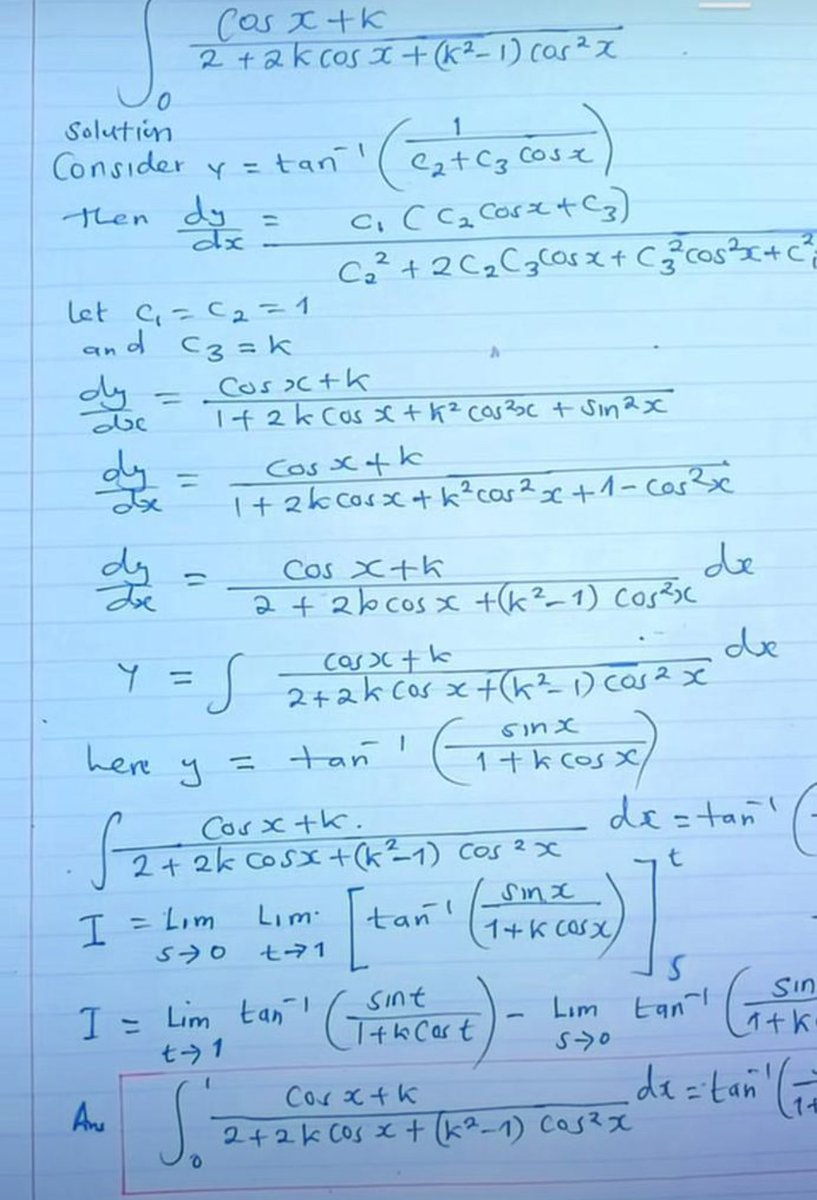 ∫₀ (Cos x + k) / (2 + 2k cos x + (k² - 1) cos² x)
Solution
Consider y = tan⁻¹ (1 / (C₂ + C₃ cos x))
then dy/dx = C₁ (C₂ cos x + C₃) / (C₂² + 2C₂C₃ cos x + C₃² cos² x + C²
let C₁ = C₂ = 1
and C₃ = k
dy/dx = (cos x + k) / (1 + 2k cos x + k² cos² x + sin² x)
dy/dx = (cos x + k) / (1 + 2k cos x + k² cos² x + 1 - cos² x)
dy/dx = (cos x + k) / (2 + 2k cos x + (k² - 1) cos² x) dx
Y = ∫ (cos x + k) / (2 + 2k cos x + (k² - 1) cos² x) dx
here y = tan⁻¹ (sin x / (1 + k cos x))
∫ (Cos x + k.) / (2 + 2k cos x + (k² - 1) cos² x) dx = tan⁻¹ (
I = Lim s→0 Lim t→1 [tan⁻¹ (sin x / (1 + k cos x))]ₛᵗ
I = Lim t→1 tan⁻¹ (sin t / (1 + k cos t)) - Lim s→0 tan⁻¹ (sin / (1 + k
Ans ∫₀¹ (cos x + k) / (2 + 2k cos x + (k² - 1) cos² x) dx = tan⁻¹ ( / (1+